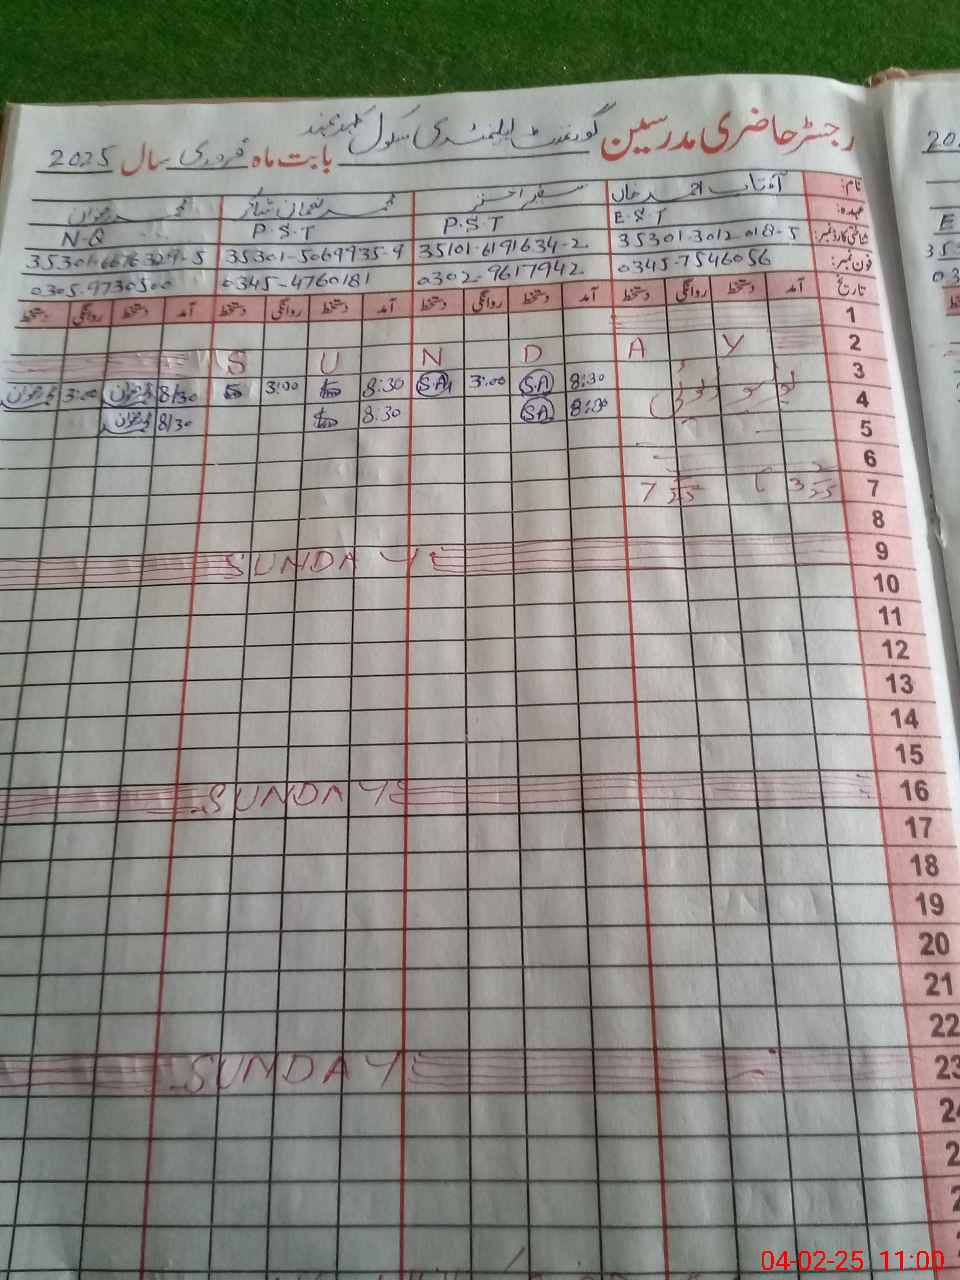 رجسٹر حاضری مدرسین گورنمنٹ ایلیمنٹری سکول بابت ماہ فروری سال 2025
نام: آفتاب احمد خان سفیر اختر محمد رضوان
عہدہ: E.S.T P.S.T P.S.T N-Q
شناختی کارڈ نمبر: 35301-3012018-5 35101-6191634-2 35301-5069935-9 35301-6676329-5
فون نمبر: 0345-7546056 0302-9617942 0345-4760181 0305-9730500
تاریخ آمد دستخط روانگی دستخط آمد دستخط روانگی دستخط آمد دستخط روانگی دستخط آمد دستخط روانگی دستخط
1
2 S U N D A Y
3 8:30 SA 3:00 SA 8:30 3:00 8/30 3:00
4 8:30 SA 8:30 8/30
5
6
7
8
9 SUNDAY
10
11
12
13
14
15
16 SUNDAY
17
18
19
20
21
22
23 SUNDAY
24
04-02-25 11:00